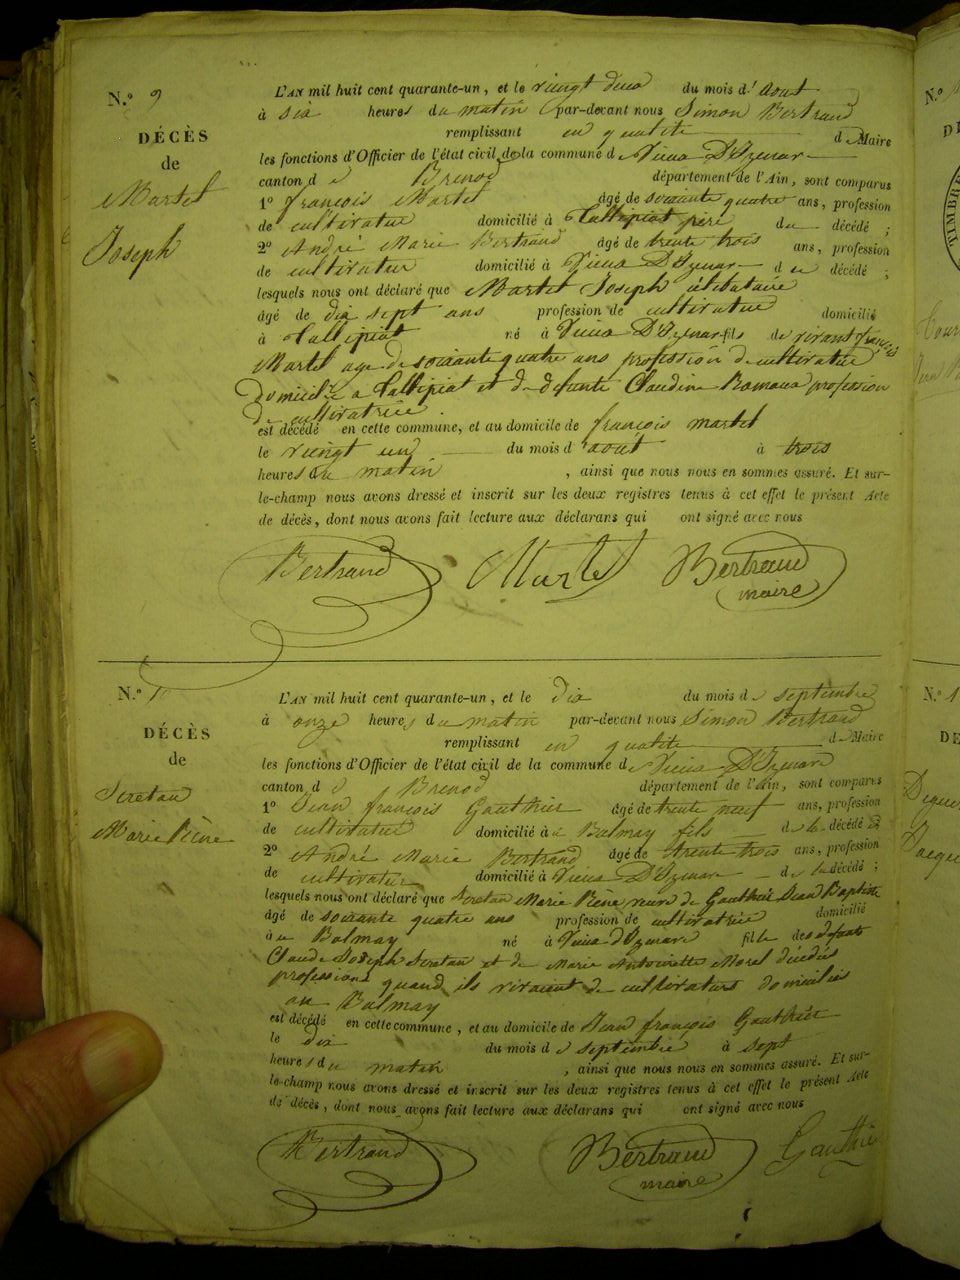 N.° 9
DÉCÈS
de
Martel
Joseph
L'AN mil huit cent quarante-un, et le vingt deux du mois d'Aout
à six heures du matin par-devant nous Simon Bertrand
remplissant en qualité d Maire
les fonctions d'Officier de l'état civil de la commune de Vieux D'Izenave
canton de Brenod département de l'Ain, sont comparus
1° françois Martel âgé de soixante quatre ans, profession
de cultivateur domicilié à Tallipiat père du décédé ;
2° André Marie Bertrand âgé de trente trois ans, profession
de cultivateur domicilié à Vieux D'Izenave d u décédé ;
lesquels nous ont déclaré que Martel Joseph célibataire
âgé de dix sept ans profession de cultivateur domicilié
à Tallipiat né à Vieux D'Izenave fils de vivant françois
Martel age de soixante quatre ans profession de cultivateur
Domicilié a Tallipiat et de defunte Claudine profession
De cultivatrice
est décédé en cette commune, et au domicile de françois martel
le vingt un du mois d'aout à trois
heures du matin , ainsi que nous nous en sommes assuré. Et sur-
le-champ nous avons dressé et inscrit sur les deux registres tenus à cet effet le présent Acte
de décès, dont nous avons fait lecture aux déclarans qui ont signé avec nous
Bertrand Martel Bertrand
maire
N.° 10
DÉCÈS
de
Secretan
Marie Pierre
L'AN mil huit cent quarante-un, et le dix du mois de septembre
à onze heures du matin par-devant nous Simon Bertrand
remplissant en qualité de Maire
les fonctions d'Officier de l'état civil de la commune de Vieux D'Izenave
canton de Brenod département de l'Ain, sont comparus
1° Jean françois Gauthier âgé de trente neuf ans, profession
de cultivateur domicilié à u Balmay fils de la décédé
2° André Marie Bertrand âgé de trente trois ans, profession
de cultivateur domicilié à Vieux D'Izenave de la décédé ;
lesquels nous ont déclaré que Marie Pierre veuve de Gauthier Jean Baptiste
âgé de soixante quatre ans profession de cultivatrice domicilié
à u Balmay né à Vieux d'Izenave fille des defunts
Claude Joseph et de Marie Antoinette Morel décédés
profession quand ils vivaient de cultivateurs domiciliés
au Balmay
est décédé en cette commune, et au domicile de Jean françois Gauthier
le dix du mois de septembre à sept
heures du matin , ainsi que nous nous en sommes assuré. Et sur-
le-champ nous avons dressé et inscrit sur les deux registres tenus à cet effet le présent Acte
de décès, dont nous avons fait lecture aux déclarans qui ont signé avec nous
Bertrand Bertrand Gauthier
maire
N.°
TIMBRE
N.° 1